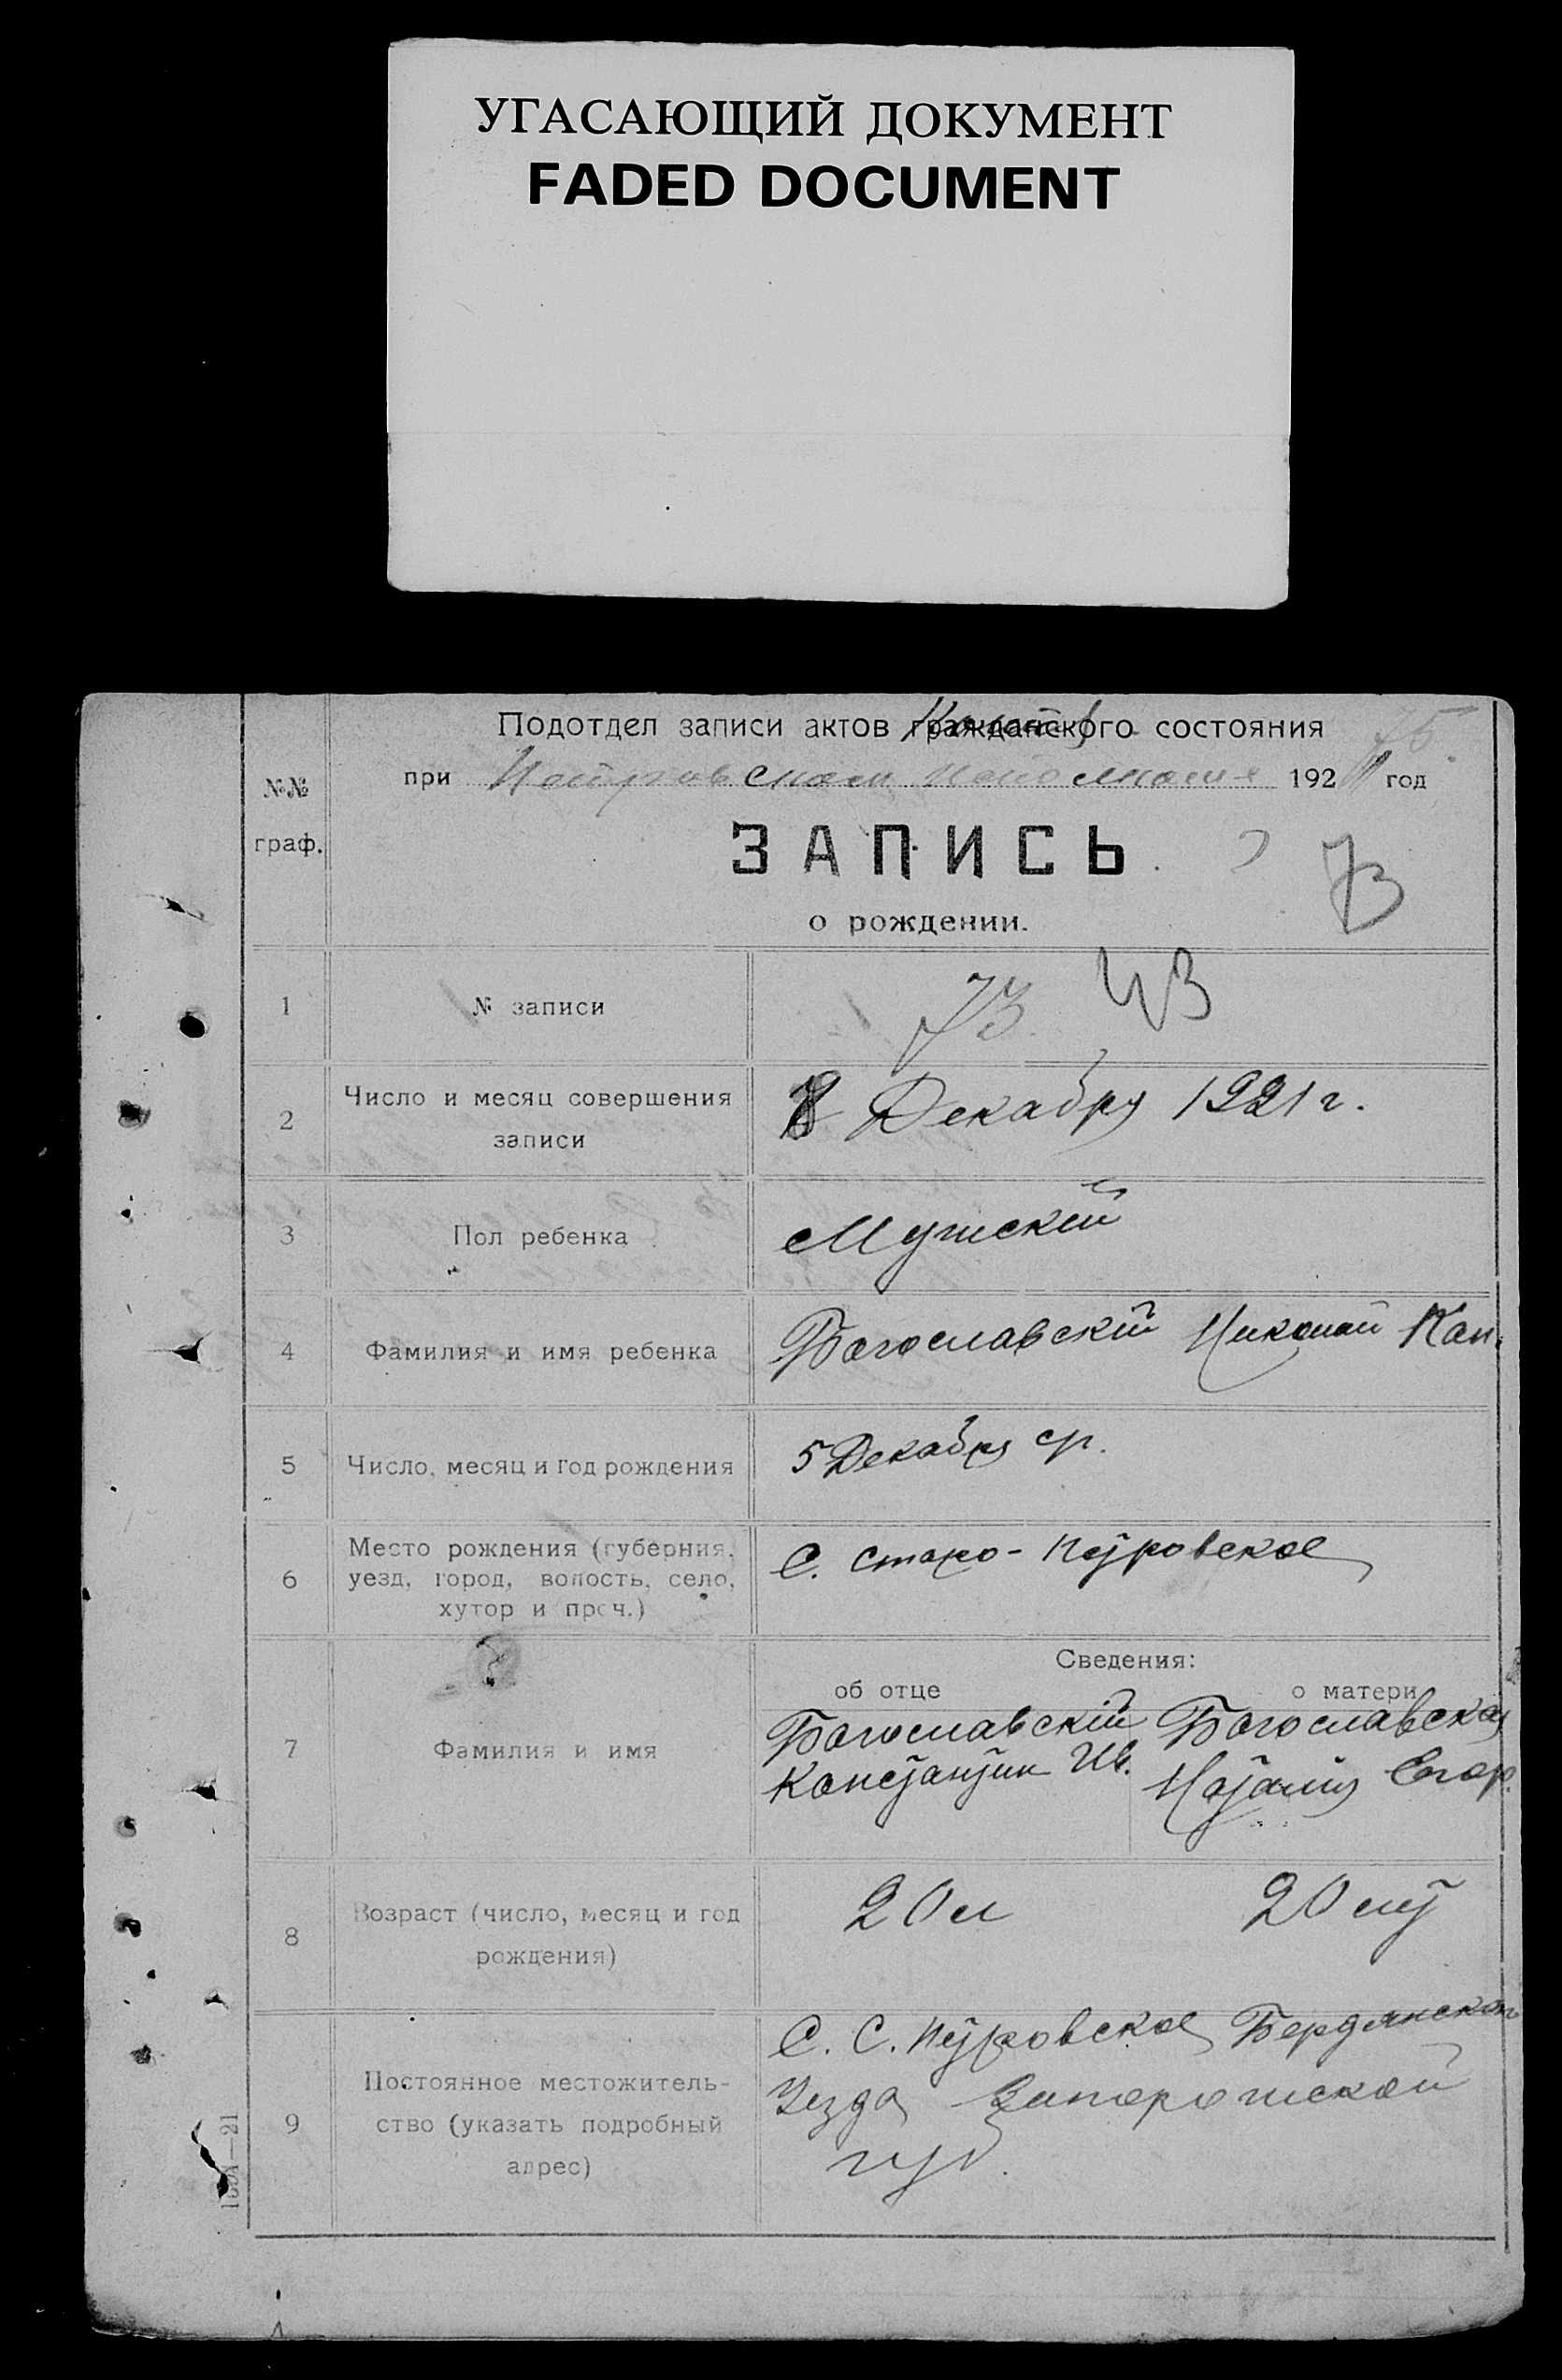 УГАСАЮЩИЙ ДОКУМЕНТ
FADED DOCUMENT
Подотдел записи актов гражданского состояния
75
при Петровском 192 год
№№
граф.
ЗАПИСЬ
73
о рождении.
1 № записи 73 43
2 Число и месяц совершения 8 Декабря 1921 г.
записи
3 Пол ребенка Мужскій
4 Фамилия и имя ребенка Богославскій Николай Кон.
5 Число, месяц и год рождения 5 Декабря с/г.
6 Место рождения (губерния, С. Старо-Петровское
уезд, город, волость, село,
хутор и проч.)
Сведения:
об отце о матери
7 Фамилия и имя Богославскій Богославская
Константин Ив. Наталия Егор.
8 Возраст (число, месяц и год 20 л 20 лет
рождения)
С. С. Петровское Бердянского
9 Постоянное местожитель- Уезда Запорожской
ство (указать подробный губ.
адрес)
1681—21